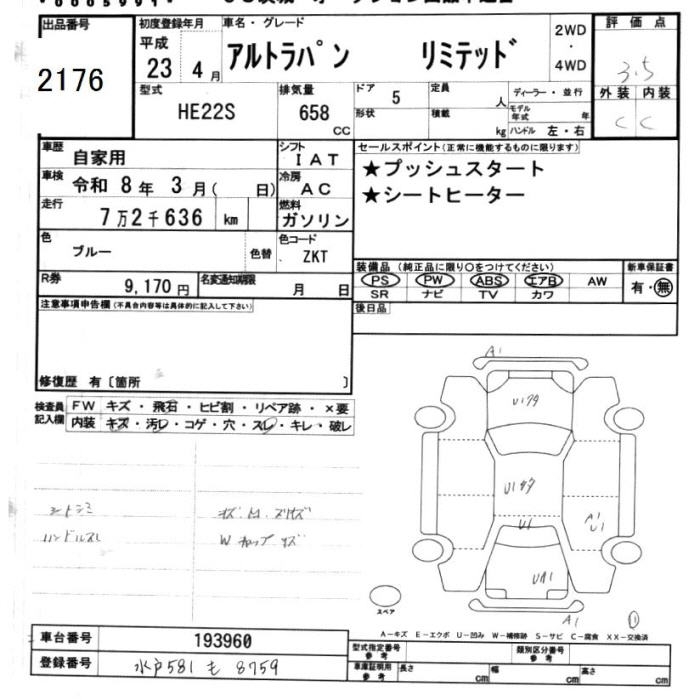 出品番号 初度登録年月 車名・グレード 2WD・4WD 評価点
2176 平成 23 4月 アルトラパン リミテッド 3.5
型式 排気量 ドア 定員 ディーラー・並行 外装 内装
HE22S 658 CC 5 人 モデル年式 年 C C
形状 積載 kg ハンドル 左・右
車歴 自家用 シフト IAT セールスポイント(正常に機能するものに限ります)
車検 令和 8年 3月( 日) 冷房 AC ★プッシュスタート
走行 7万2千636 km 燃料 ガソリン ★シートヒーター
色 ブルー 色替 色コード ZKT
装備品 (純正品に限り〇をつけてください) 新車保証書
R券 9,170円 名変通知期限 月 日 PS PW ABS エアB AW 有・無
SR ナビ TV カワ
注意事項申告欄(不具合内容等は具体的に記入して下さい) 後日品
修復歴 有〔箇所 〕
検査員記入欄 FW キズ・飛石・ヒビ割・リペア跡・×要
内装 キズ・汚レ・コゲ・穴・スレ・キレ・破レ
A1
U1
A1
U1
A1
スペア
A-キズ E-エクボ U-凹み W-補修跡 S-サビ C-腐食 XX-交換済
車台番号 193960 型式指定番号 参考 類別区分番号 参考
登録番号 水戸581 も 8759 車庫証明用 参考 長さ cm 幅 cm 高さ cm